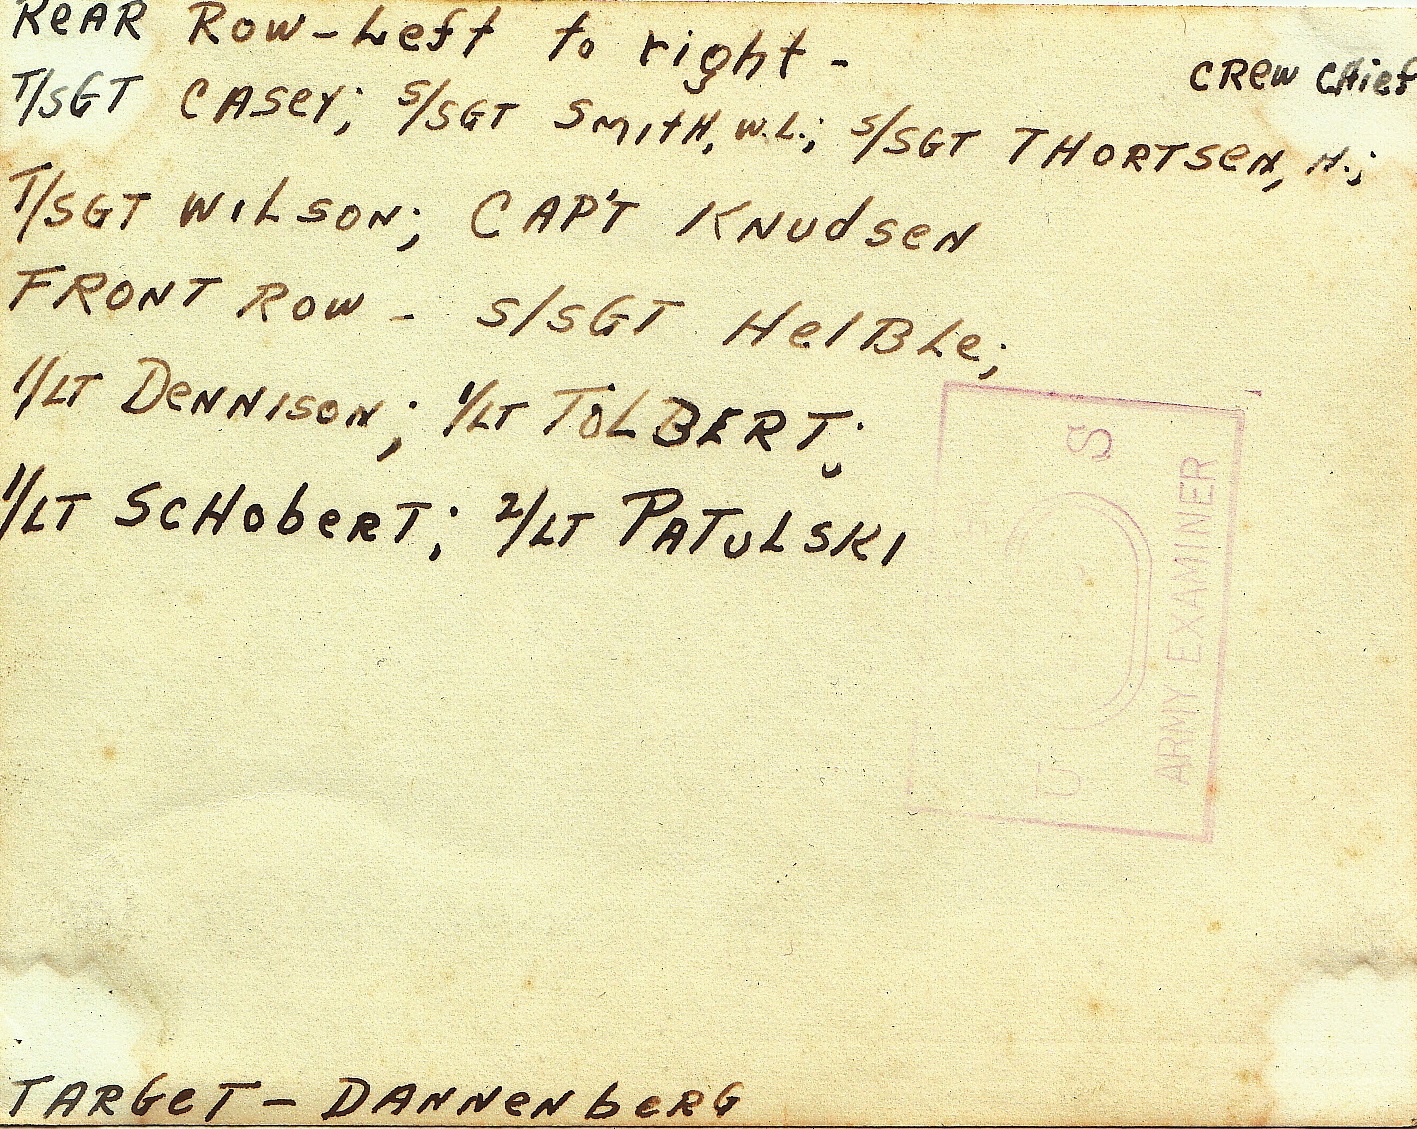 ReAR Row - Left to right -
CRew CHief
T/SGT CASeY; S/SGT SMITH, W.L.; S/SGT THORTSeN, N.;
T/SGT WILSON; CAP'T KNUdSeN
FRONT ROW - S/SGT HeIBLe;
1/LT DeNNISON; 1/LT TOLBERT;
1/LT SCHObeRT; 2/LT PATULSKI
U S
ARMY EXAMINER
TARGeT - DANNeNbeRG